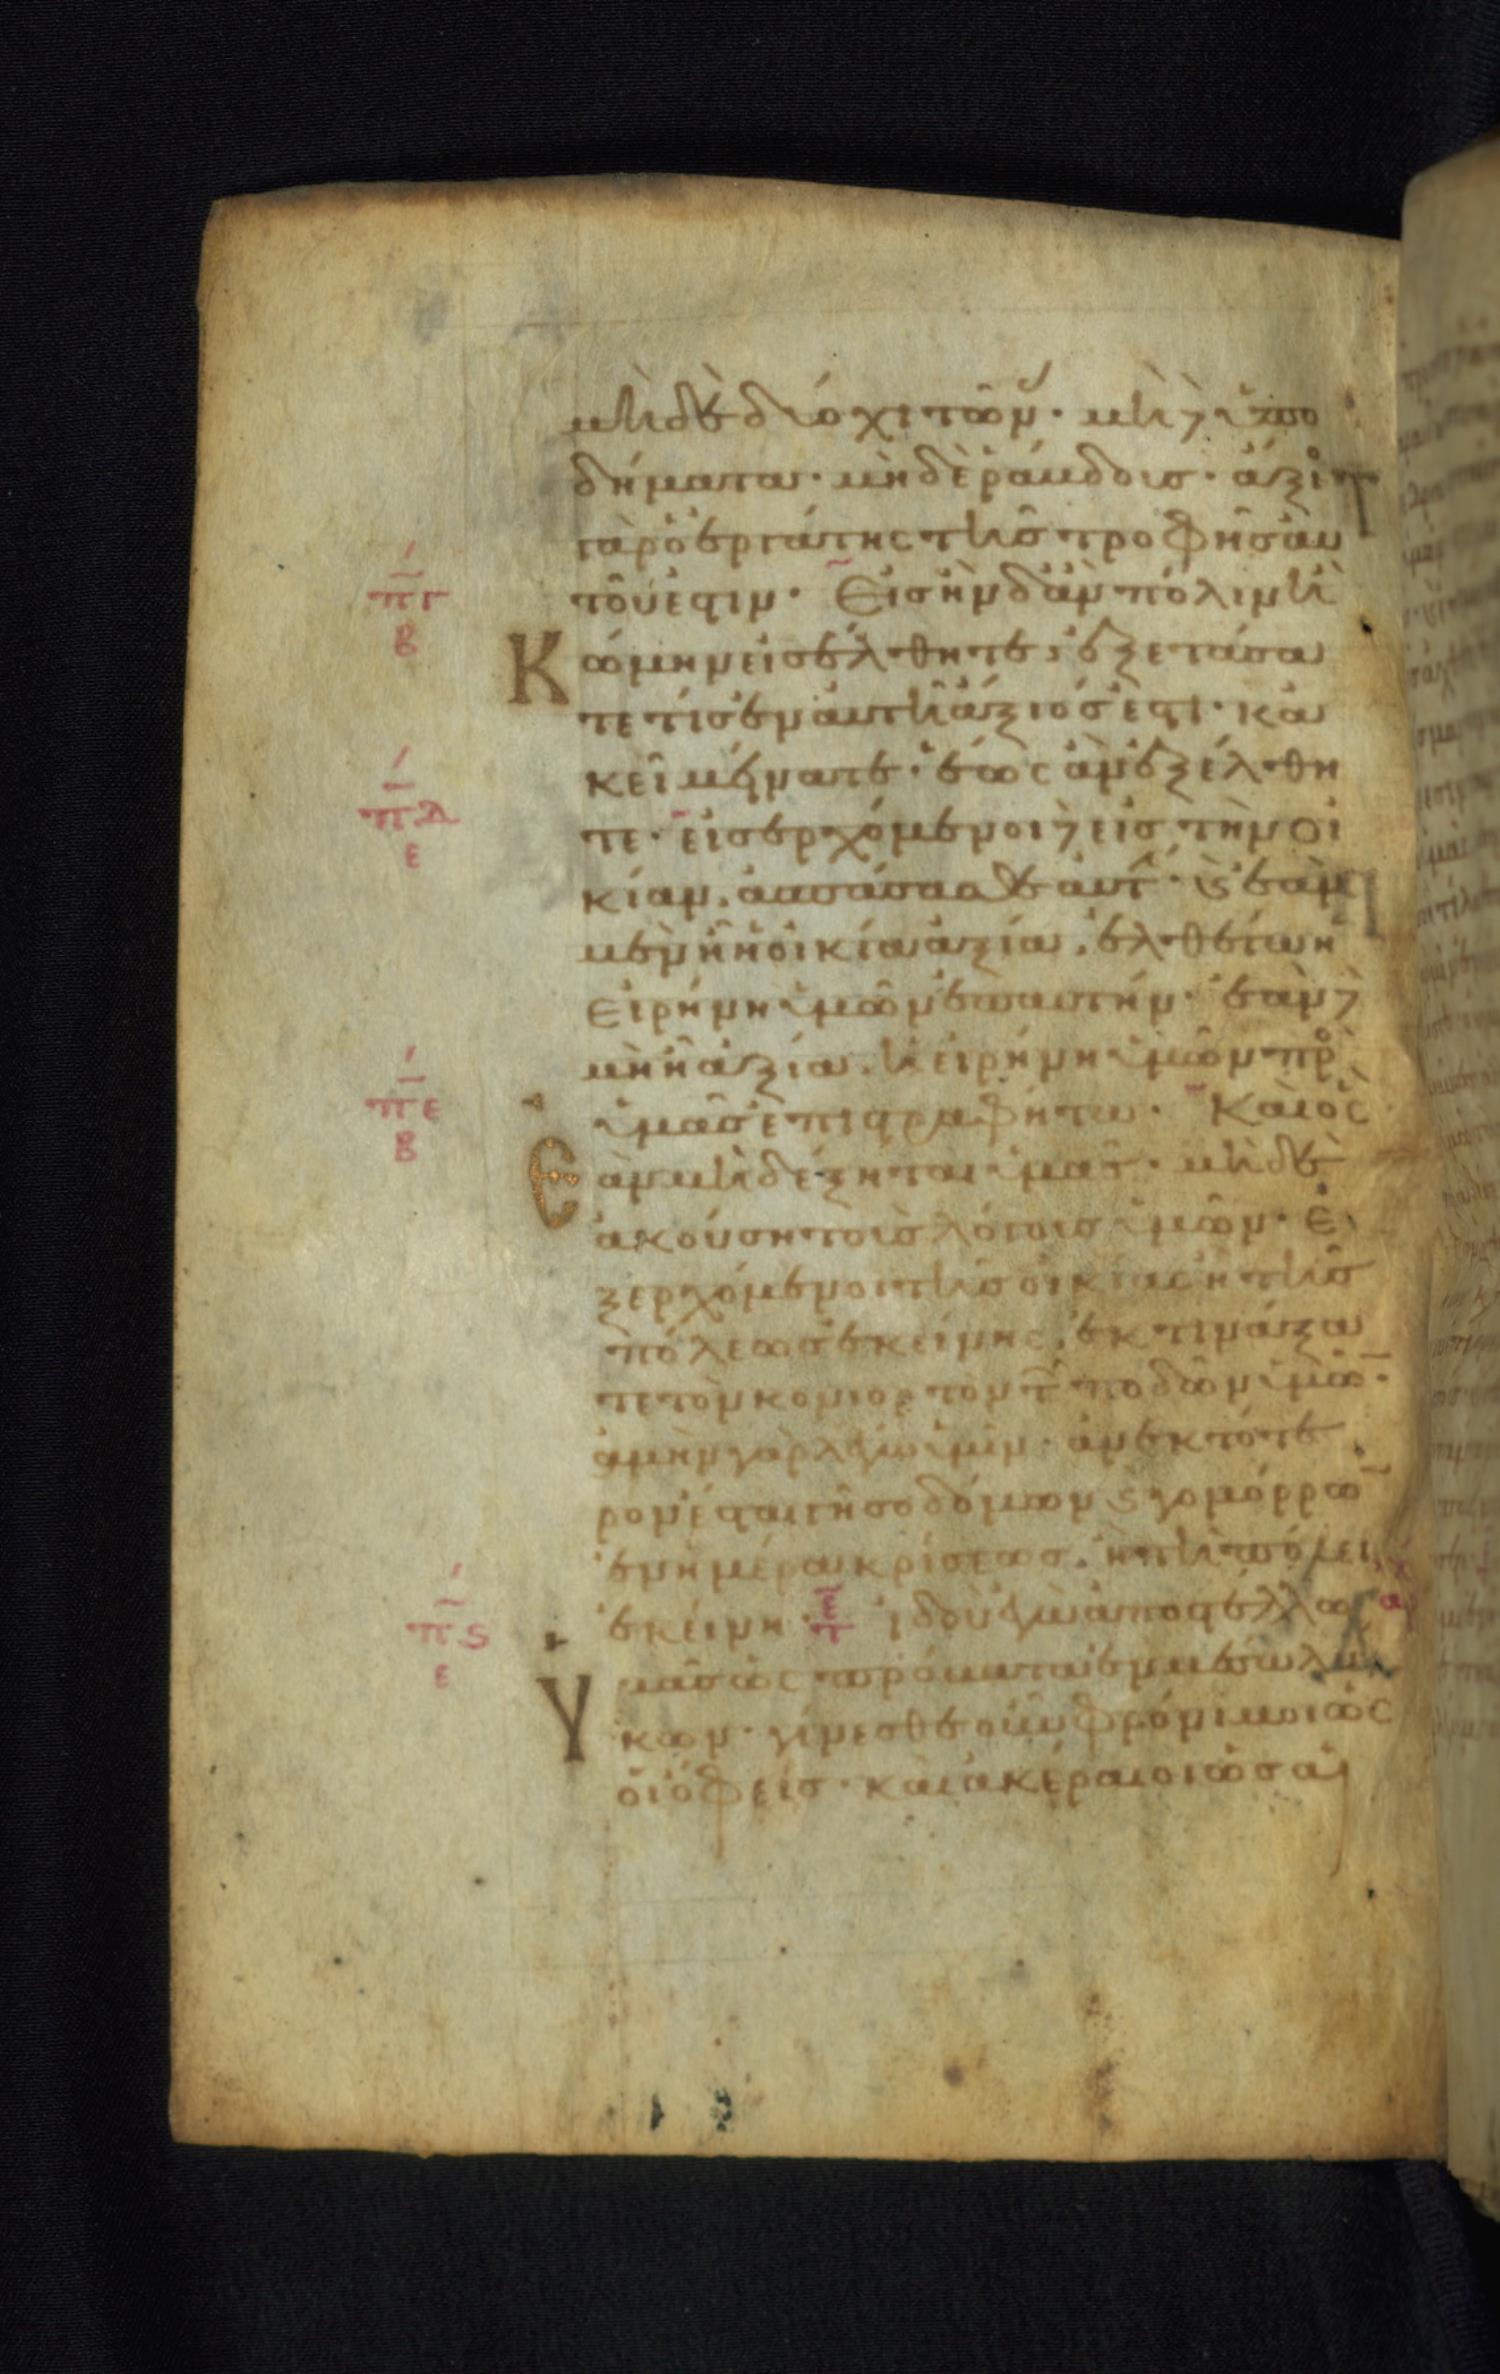 μὴ δὲ δύο χιτῶν· μὴ δὲ ὑπο
δήματα· μὴ δὲ ράβδους· ἄξι
γὰρ ὁ ἐργάτης τῆς τροφῆς αυ
τοῦ ἐστιν· Εἰς ἣν δ' ἂν πόλιν ἢ
πγ
β
κώμην εἰσέλθητε, ἐξετάσα
τε τίς ἐν αυτῆ ἄξιός ἐστι· κα
κεῖ μείνατε· ἕως ἂν ἐξέλθη
πδ
ε
τε· εἰσερχόμενοι δὲ εἰς τὴν οἰ
κίαν, ἀσπάσασθε αὐτ· κ ἐὰν
μὲν ἦ ἡ οἰκία ἀξία, ἐλθέτω ἡ
εἰρήνη ὑμῶν ἐπ αυτήν· ἐὰν δὲ
μὴ ἦ ἀξία, ἡ εἰρήνη ὑμῶν πρ
πε
β
ὑμᾶς ἐπιστραφήτω· Καὶ ὃς
ἐὰν μὴ δέξηται ὑμᾶς· μὴ δὲ
ἀκούση τοὺς λόγους ὑμῶν· ἐ
ξερχόμενοι τῆς οἰκίας ἢ τῆς
πόλεως ἐκείνης, ἐκτινάξα
τε τὸν κονιορτὸν τ ποδῶν ὑμῶ·
ἀμὴν γὰρ λέγω ὑμῖν· ἀνεκτότε
ρον ἔσται γῆ σοδόμων κ γομόρρω
ἐν ἡμέρα κρίσεως, ἢ τῆ πόλει
ἐκείνη· ἰδοὺ ἐγὼ ἀποστέλλω
πς
ε
ὑμᾶς ὡς πρόβατα ἐν μέσω λύ
κων· γίνεσθε οὖν φρόνιμοι ὡς
οἱ ὄφεις· καὶ ἀκέραιοι ὡς αἱ